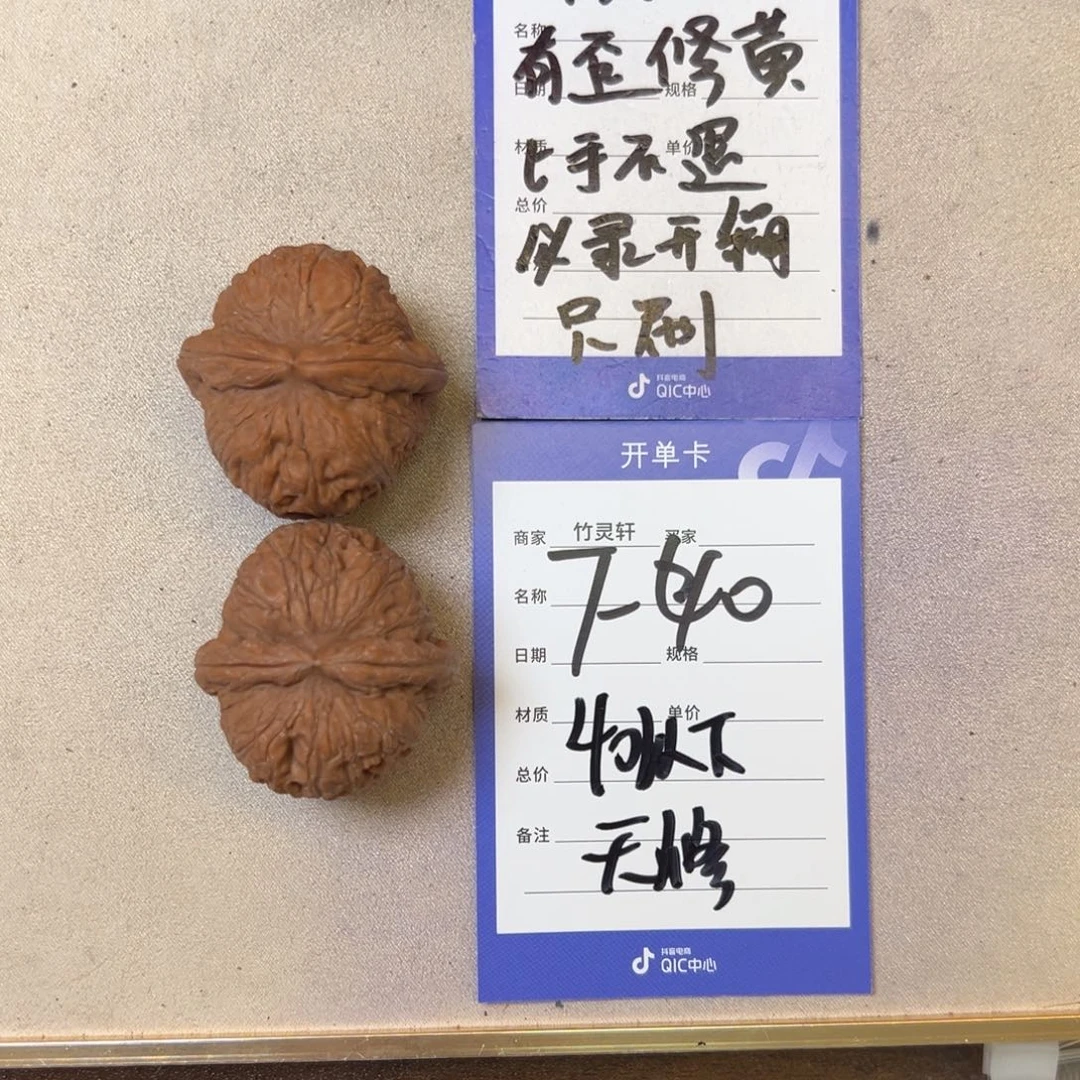 名称
有歪修黄
日期 规格
材质 单价
上手不退
总价
必录开箱
只刷
抖音电商
QIC中心
开单卡
商家 竹灵轩 买家
名称
日期 规格
材质 单价
40以下
总价
备注
抖音电商
QIC中心